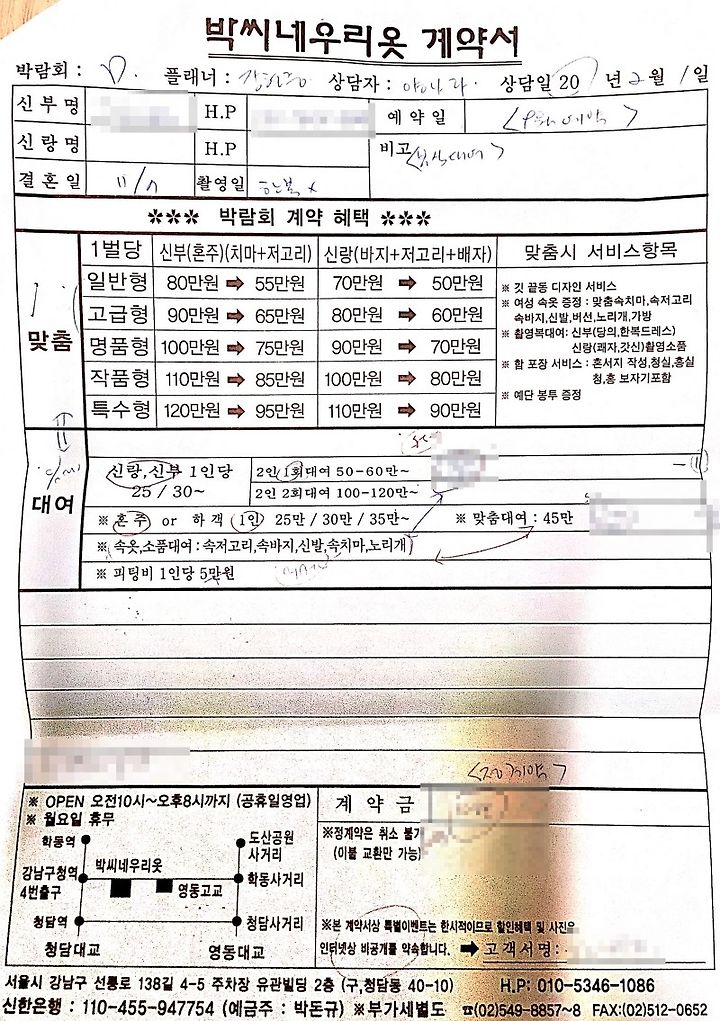 박씨네우리옷 계약서
박람회 : 플래너 : 상담자 : 상담일 20 년 2월 1일
신부명 H.P 예약일
신랑명 H.P 비고
결혼일 11/ 촬영일 한복 x
*** 박람회 계약 혜택 ***
맞춤
1벌당 신부(혼주)(치마+저고리) 신랑(바지+저고리+배자) 맞춤시 서비스항목
일반형 80만원 ➡ 55만원 70만원 ➡ 50만원
고급형 90만원 ➡ 65만원 80만원 ➡ 60만원
명품형 100만원 ➡ 75만원 90만원 ➡ 70만원
작품형 110만원 ➡ 85만원 100만원 ➡ 80만원
특수형 120만원 ➡ 95만원 110만원 ➡ 90만원
※ 깃 끝동 디자인 서비스
※ 여성 속옷 증정 : 맞춤속치마,속저고리
속바지,신발,버선,노리개,가방
※ 촬영복대여 : 신부(당의,한복드레스)
신랑(쾌자,갓신)촬영소품
※ 함 포장 서비스 : 혼서지 작성,청실,홍실
청,홍 보자기포함
※ 예단 봉투 증정
대여
신랑,신부 1인당
25 / 30~
2인 1회대여 50-60만~
2인 2회대여 100-120만~
※ 혼주 or 하객 1인 25만 / 30만 / 35만~ ※ 맞춤대여 : 45만
※ 속옷,소품대여 : 속저고리,속바지,신발,속치마,노리개
※ 피팅비 1인당 5만원
※ OPEN 오전10시~오후8시까지 (공휴일영업)
※ 월요일 휴무
학동역 도산공원
사거리
박씨네우리옷
강남구청역
4번출구
영동고교 학동사거리
청담역 청담사거리
청담대교 영동대교
계 약 금
※정계약은 취소 불가
(이불 교환만 가능)
※본 계약서상 특별이벤트는 한시적이므로 할인혜택 및 사진은
인터넷상 비공개를 약속합니다. ➡ 고객서명 :
서울시 강남구 선릉로 138길 4-5 주차장 유관빌딩 2층 (구,청담동 40-10) H.P: 010-5346-1086
신한은행 : 110-455-947754 (예금주 : 박돈규) ※부가세별도 ☎(02)549-8857~8 FAX:(02)512-0652